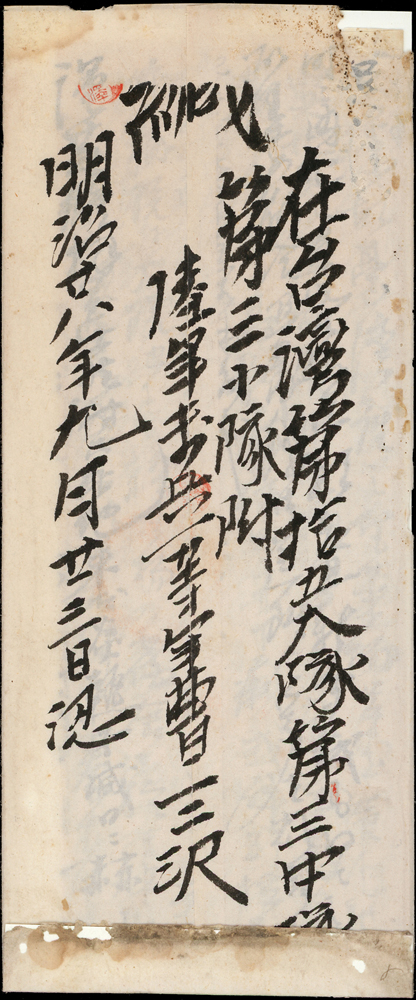 在台灣第拾五大隊第三中隊
第三小隊附
陸軍歩兵一等軍曹三沢
緘
明治廿八年九月廿三日認